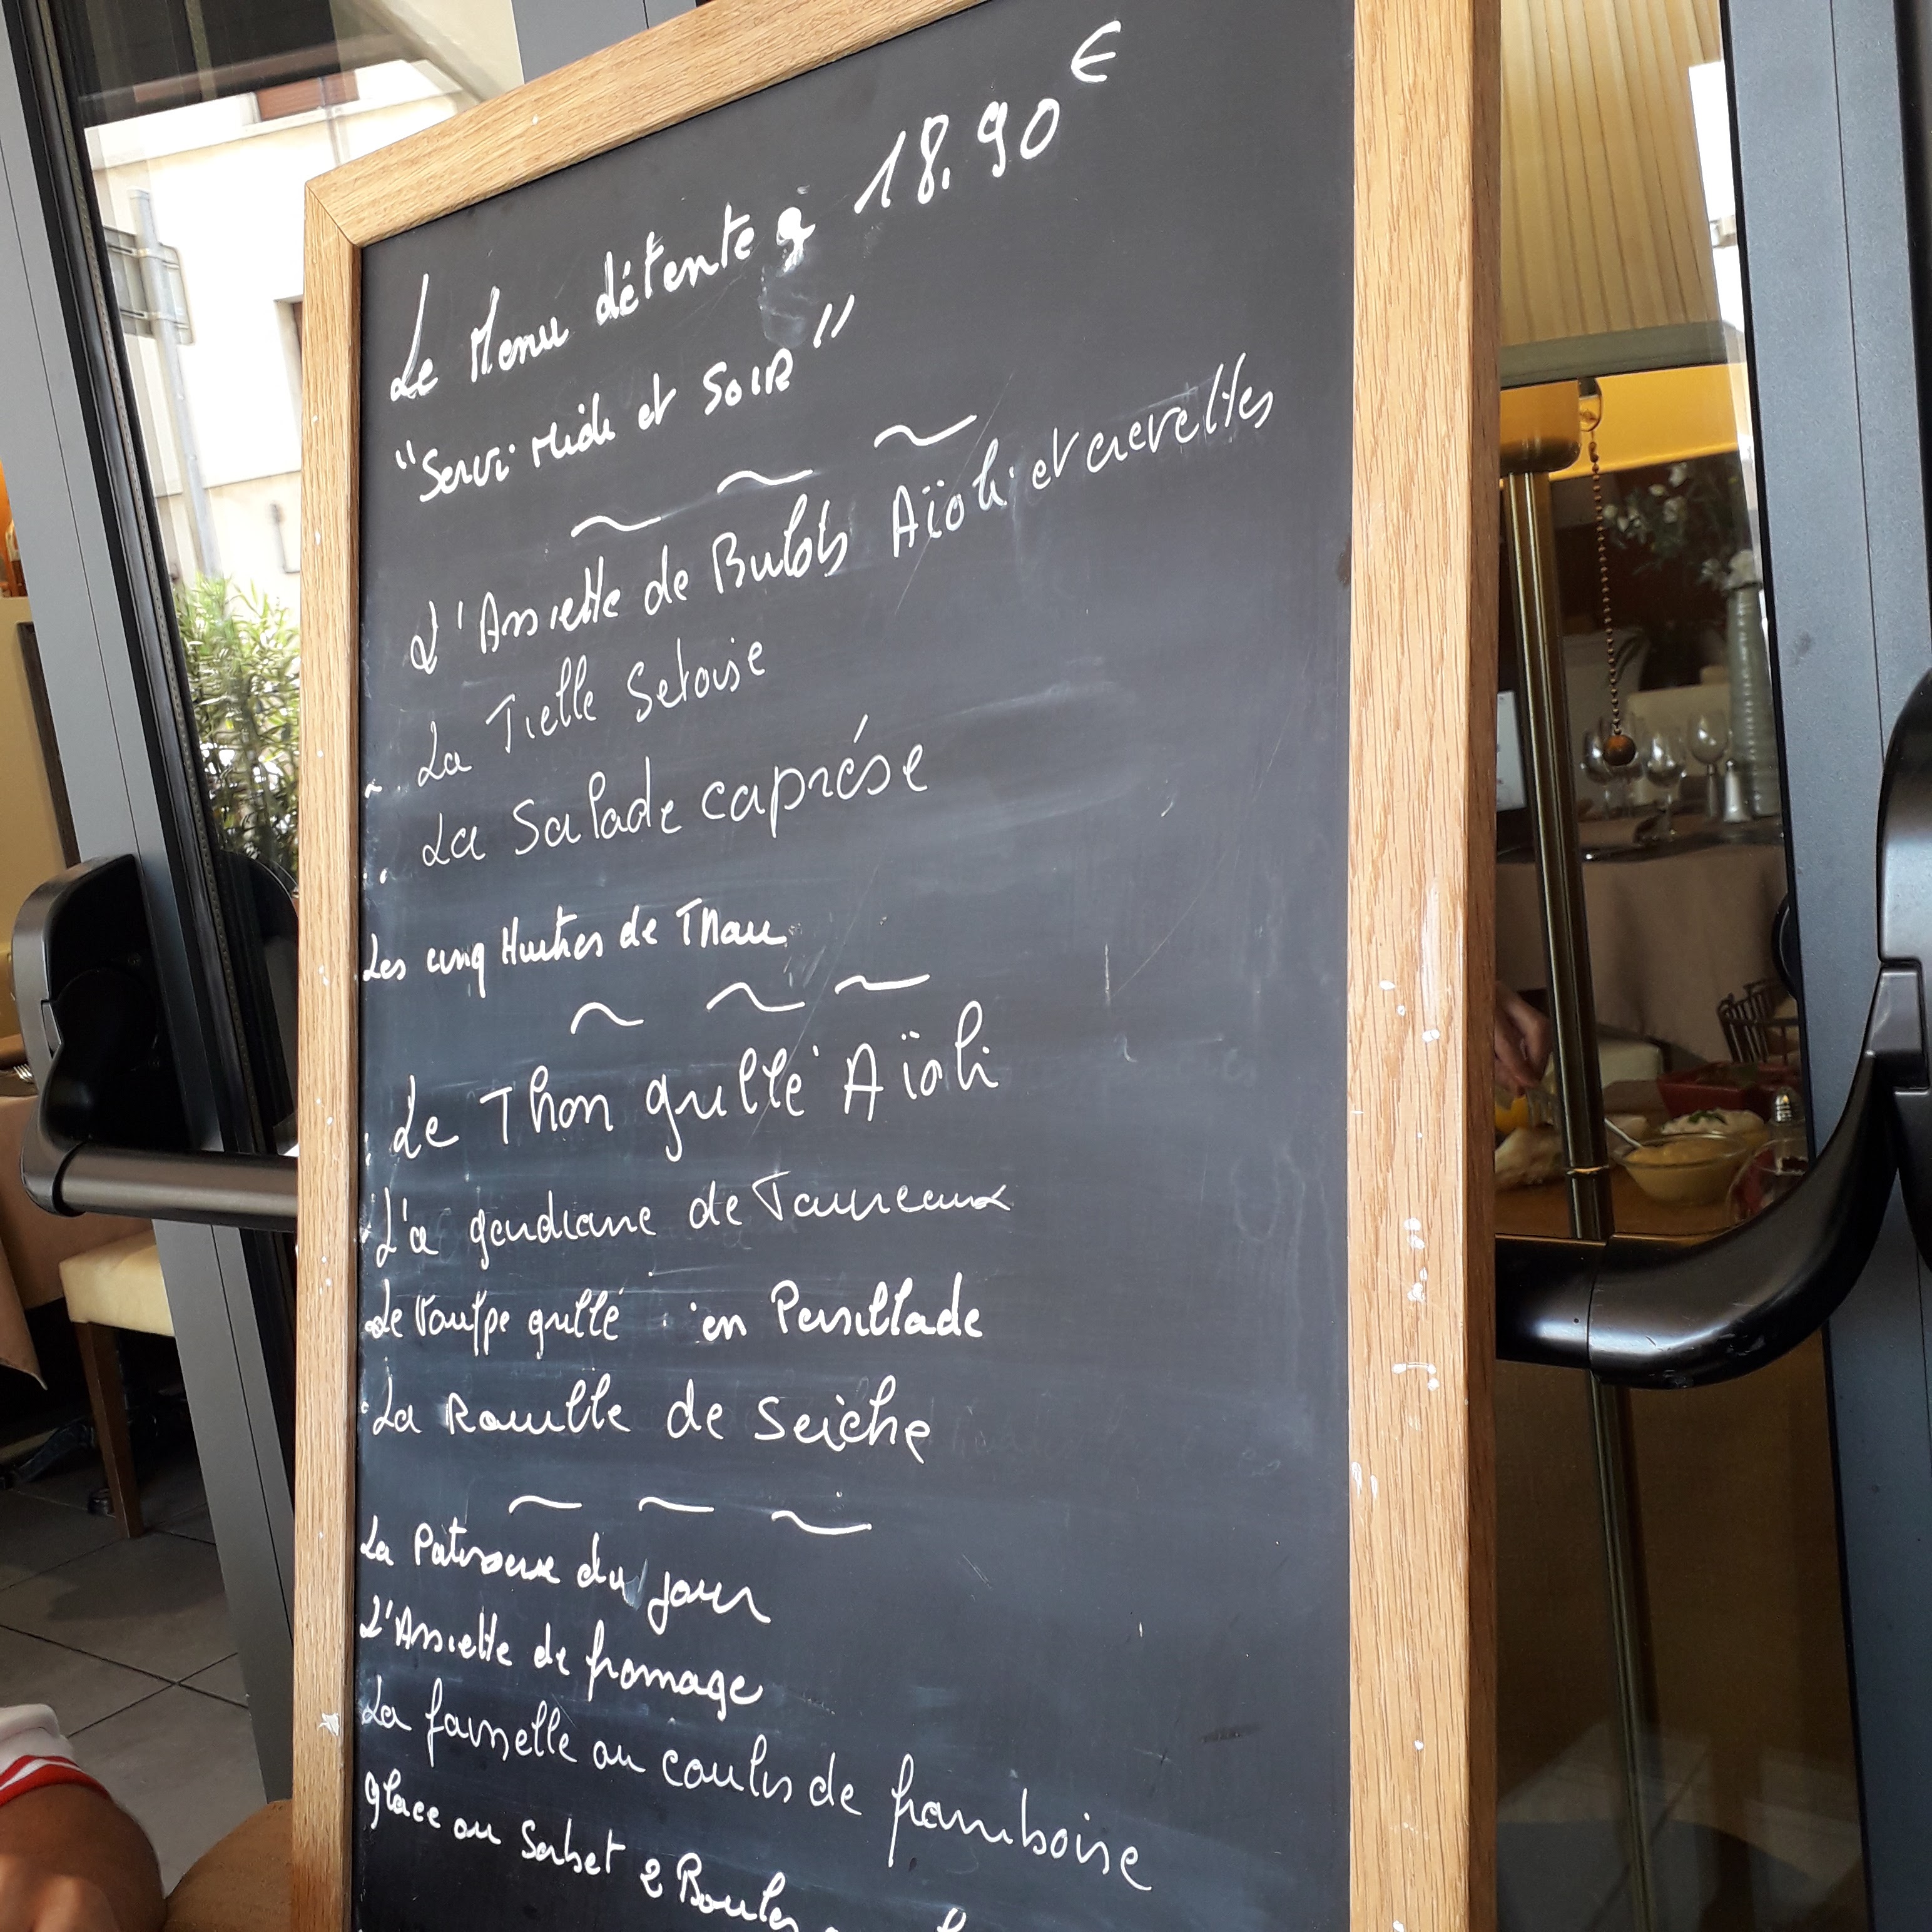 Le Menu détente à 18.90€
"Servi Midi et SOIR"
L'Assiette de Bulots Aïoli et crevettes
La Tielle Setoise
La Salade caprése
Les cinq Huitres de Thau
Le Thon grillé Aïoli
La gardiane de Taureaux
Le Poulpe grillé en Persillade
La Rouille de Seiche
La Patisserie du jour
L'Assiette de fromage
La faisselle au coulis de framboise
glace ou Sorbet 2 Boules